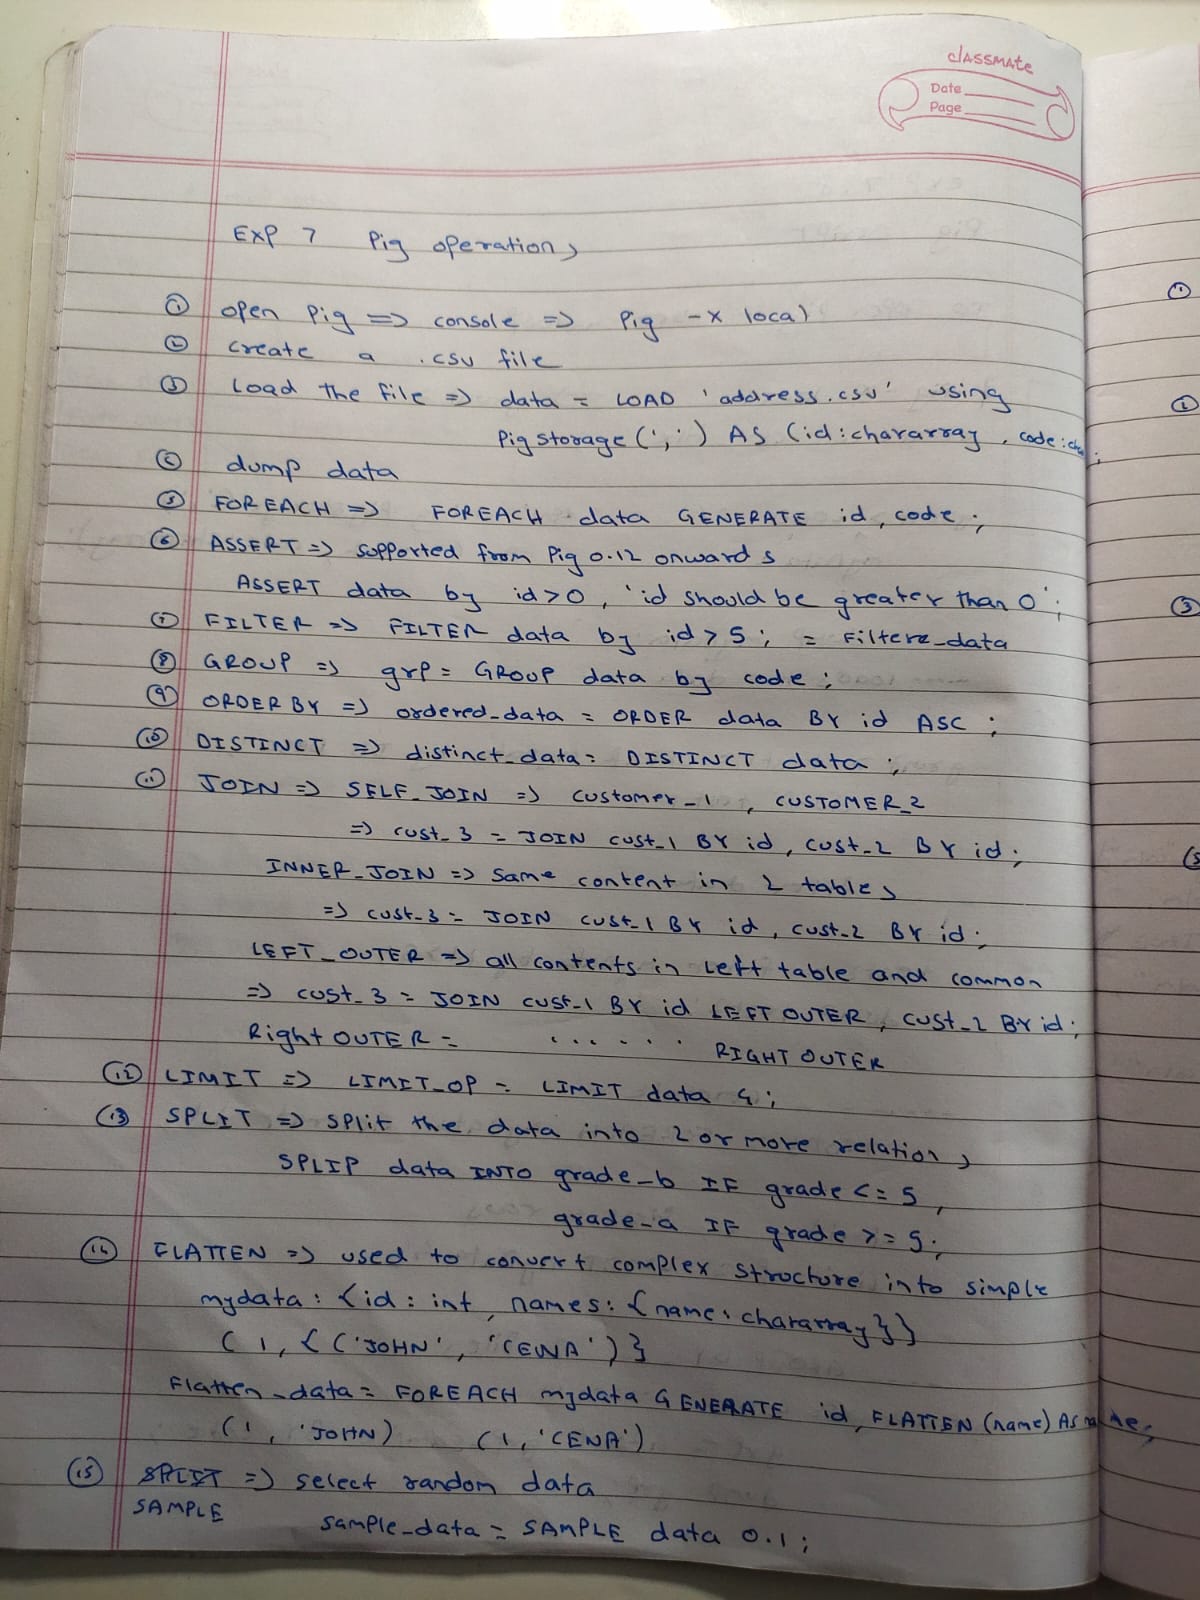 classmate
Date
Page
EXP 7 Pig operations
① open Pig => console => Pig -x local
② create a .csv file
③ Load the file => data = LOAD 'address.csv' using
PigStorage(',') AS (id:chararray, code:cha
④ dump data
⑤ FOREACH => FOREACH data GENERATE id, code;
⑥ ASSERT => supported from Pig 0.12 onwards
ASSERT data by id>0, 'id should be greater than 0';
⑦ FILTER => FILTER data by id > 5; = Filtere_data
⑧ GROUP => grp = GROUP data by code;
⑨ ORDER BY => ordered_data = ORDER data BY id ASC;
⑩ DISTINCT => distinct_data = DISTINCT data;
⑪ JOIN => SELF_JOIN => customer_1, CUSTOMER_2
=> cust_3 = JOIN cust_1 BY id, cust_2 BY id;
INNER_JOIN => same content in 2 tables
=> cust_3 = JOIN cust_1 BY id, cust_2 BY id;
LEFT_OUTER => all contents in left table and common
=> cust_3 = JOIN cust_1 BY id LEFT OUTER, cust_2 BY id;
Right OUTER = ...... RIGHT OUTER
⑫ LIMIT => LIMIT_OP = LIMIT data 4;
⑬ SPLIT => split the data into 2 or more relations
SPLIP data INTO grade_b IF grade <= 5,
grade_a IF grade >= 5;
⑭ FLATTEN => used to convert complex structure into simple
mydata: {id: int, names: {name: chararray}}
(1, {('JOHN', 'CENA')}
Flatten_data = FOREACH mydata GENERATE id, FLATTEN(name) AS name;
(1, 'JOHN) (1, 'CENA')
⑮ SPLIT => select random data
SAMPLE
sample_data = SAMPLE data 0.1;
①
②
③